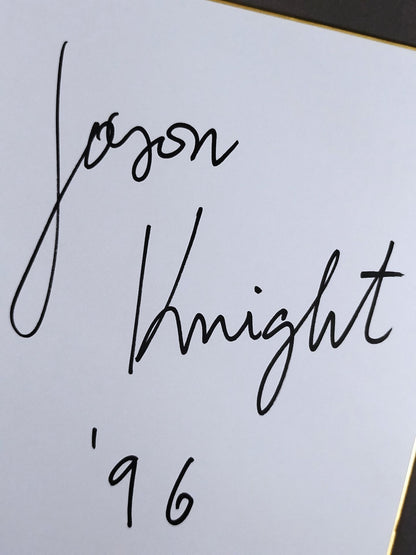 Jason
Knight
'96